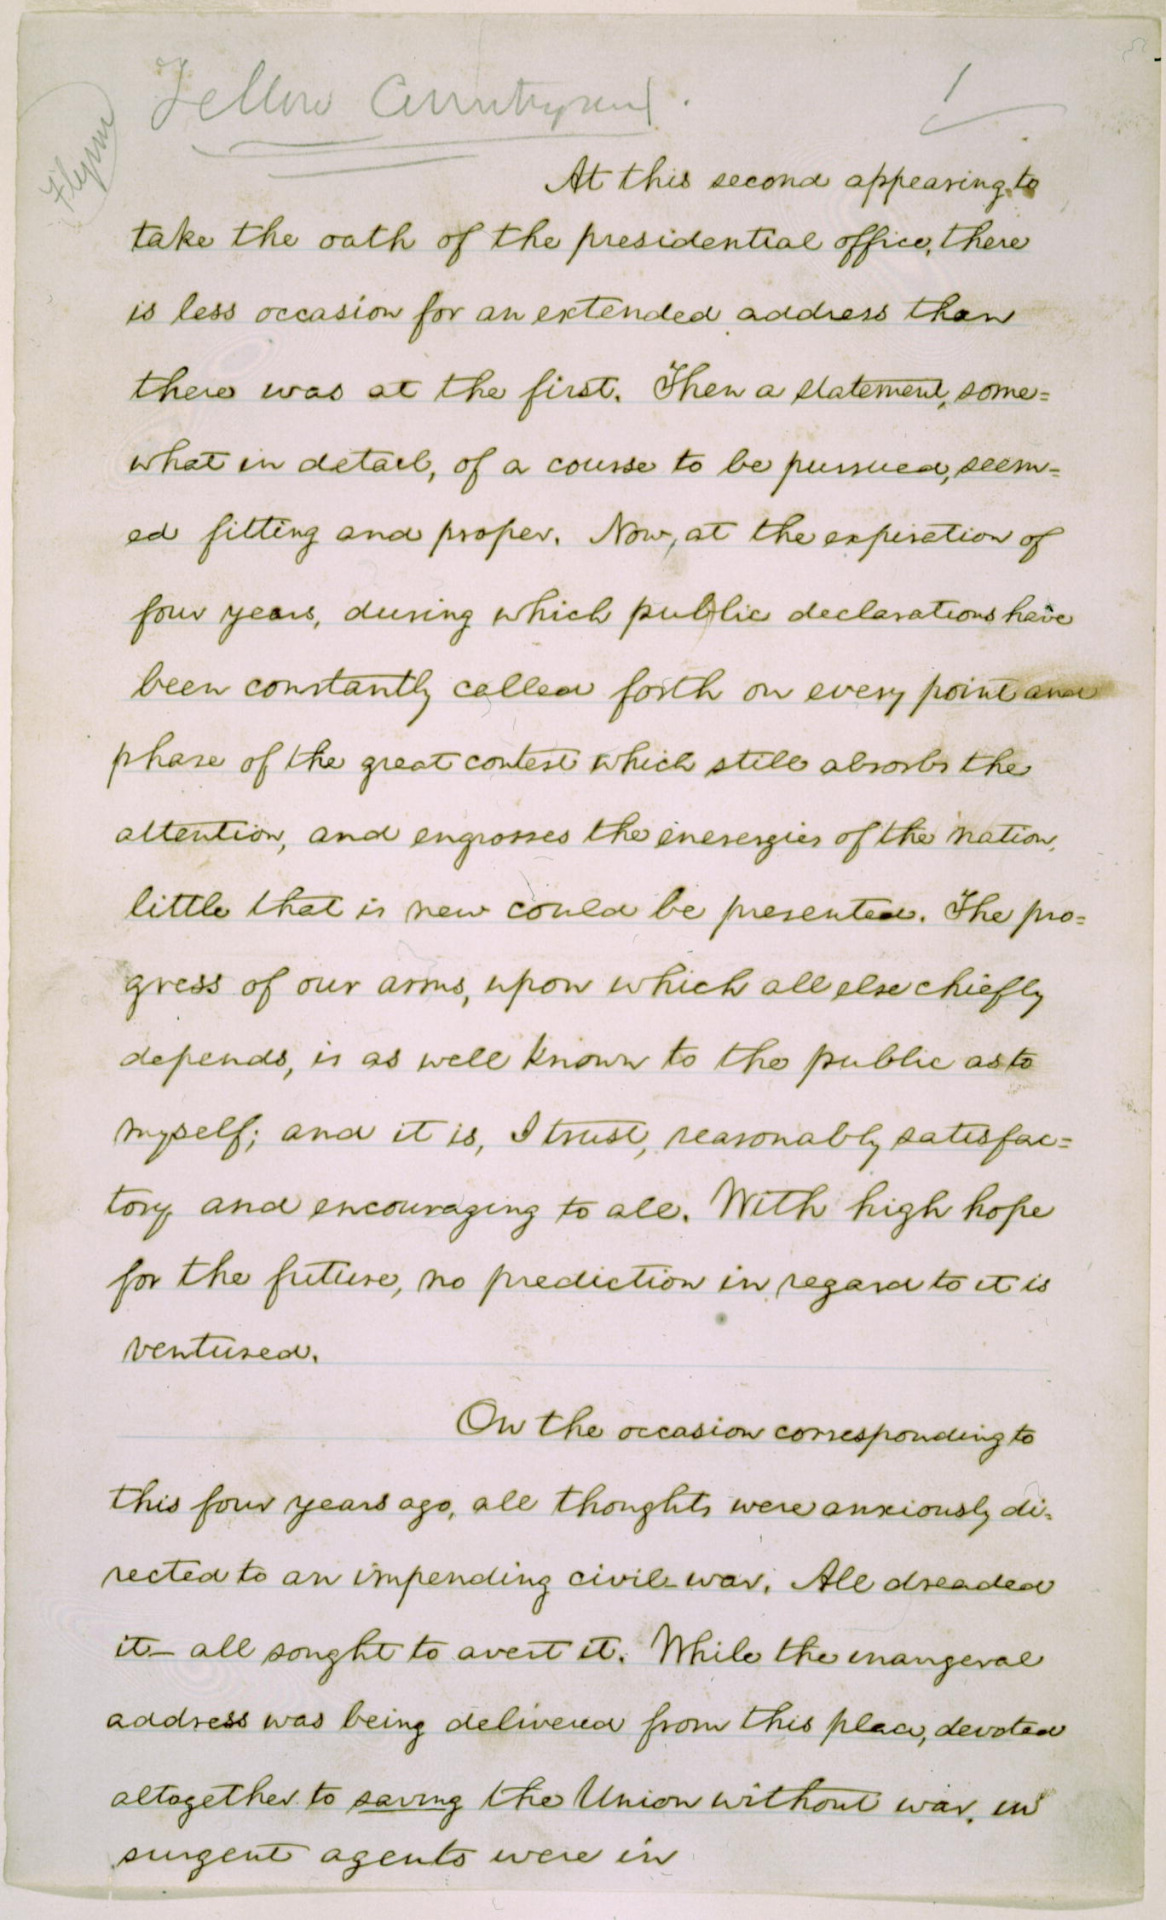 Fellow Countrymen.
1
Flynn
At this second appearing, to
take the oath of the presidential office, there
is less occasion for an extended address than
there was at the first. Then a statement, some=
what in detail, of a course to be pursued, seem=
ed fitting and proper. Now, at the expiration of
four years, during which public declarations have
been constantly called forth on every point and
phase of the great contest which still absorbs the
attention, and engrosses the enerergies of the nation,
little that is new could be presented. The pro=
gress of our arms, upon which all else chiefly
depends, is as well known to the public as to
myself; and it is, I trust, reasonably satisfac=
tory and encouraging to all. With high hope
for the future, no prediction in regard to it is
ventured.
On the occasion corresponding to
this four years ago, all thoughts were anxiously di=
rected to an impending civil-war. All dreaded
it— all sought to avert it. While the inaugeral
address was being delivered from this place, devoted
altogether to saving the Union without war, in
surgent agents were in